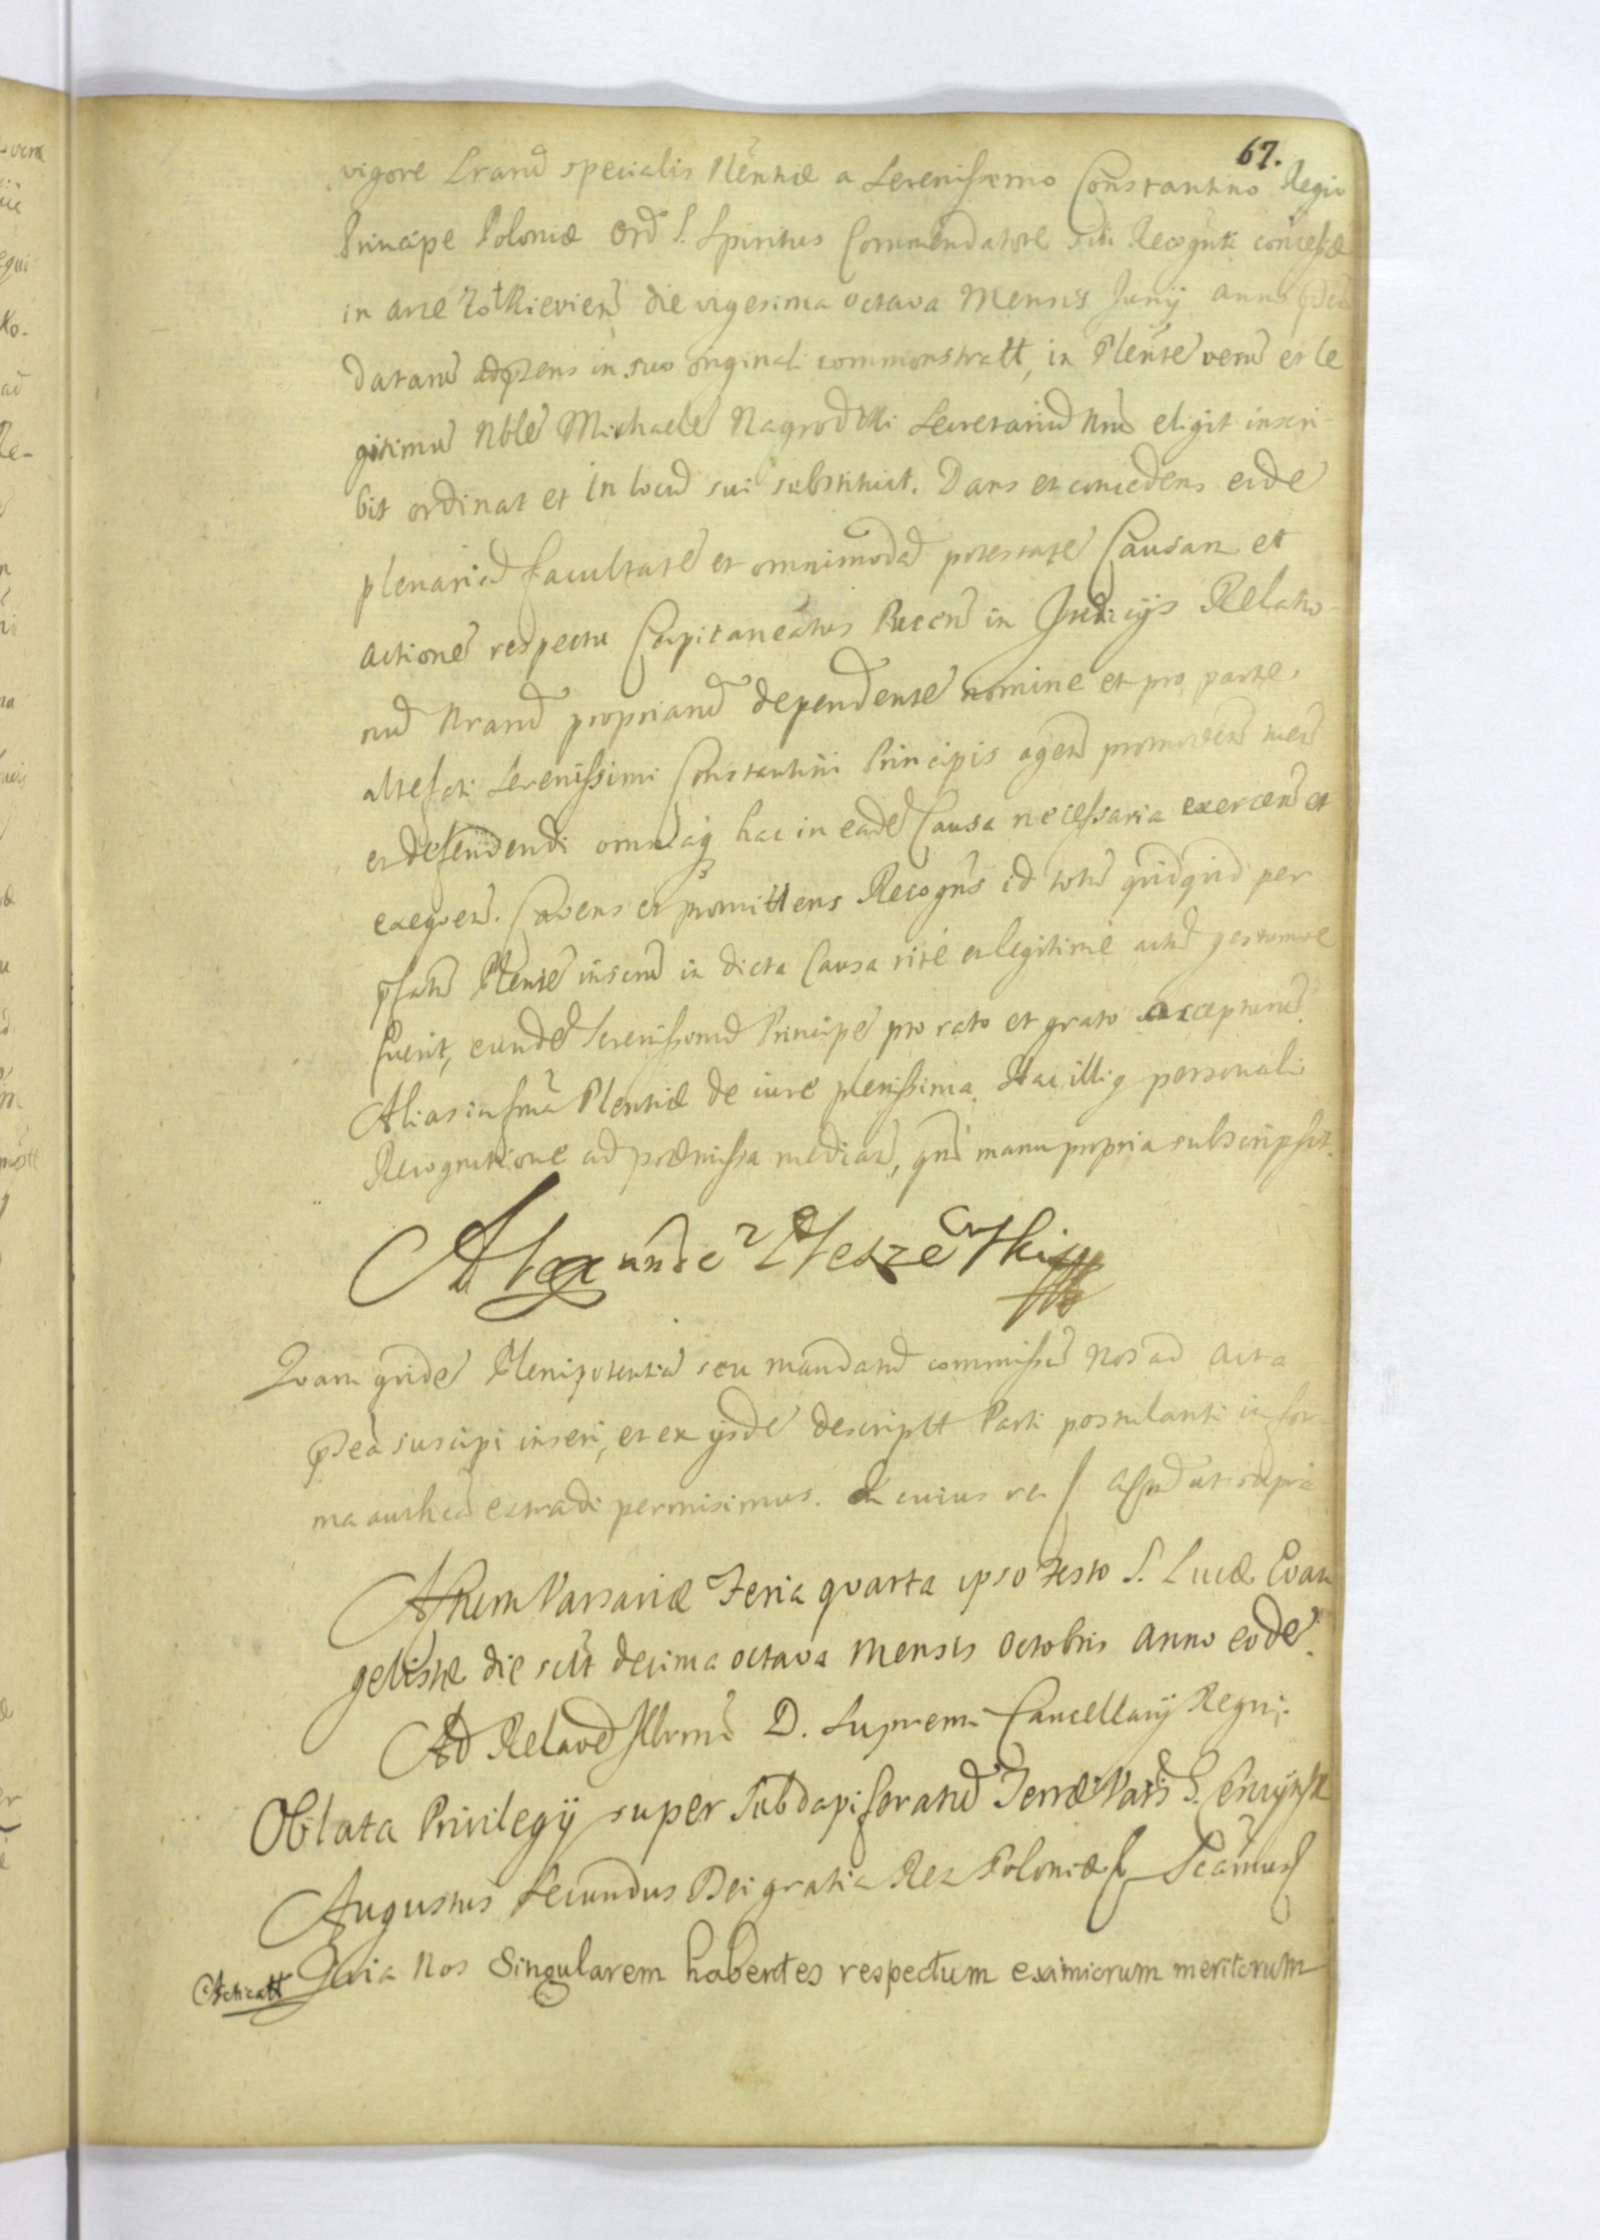 67.
vigore Lrarũ specialis Plẽntiæ a Serenissimo Constantino Regio
Principe Poloniæ Ord S. Spiritus Commendatore sibi Recognti concessæ
in arce Zołkievien̄ die vigesima octava Mensis Junij anno
datarũ adpzens in suo originali commonstratt, in Plẽntẽ verũ et le
gitimũ Nblẽ Michaelẽ Nagrodzki Secretariũ Nrũ eligit inscri-
bit ordinat et in locũ sui substituit. Dans et concedens eidẽ
plenariã facultatẽ et omnimodã potestatẽ Causam et
Actionẽ respectu Capitaneatus Pucen̄ in Judicijs Relatio-
nũ Nrarũ propriarũ dependentẽ nomine et pro parte
altefati Serenissimi Constantini Principis agen̄ promoven̄ tuen̄
et defendendi omniaq hac in eadẽ Causa necessaria exercen̄ et
exequen̄. Cavens et promittens Recogns̃ id totũ quidquid per
pfatũ Plẽntẽ insecũ in dicta Causa ritè et legitimè actũ gestumve
fuerit, eundẽ Serenissimũ Principẽ pro rato et grato accepturũ.
Alias in formã Plẽntiæ de iure plenissima. Hac illiq personali
Recognitione ad præmissa median̄, quã manu propria subscripsit.
Alexander
Quam quidẽ Plenipotentiã seu mandatũ commissũ Nos ad Acta
pseã suscipi inseri, et ex ijsdẽ descriptt Parti postulanti in for
ma authen̄ extradi permisimus. In cuius rei actũ ut supra
Actum Varsaviæ Feria quarta ipso Festo S. Lucæ Evan
gelistæ die scilt decima octava Mensis Octobris Anno eodẽ.
Ad Relaõẽ Illrmi D. Supremi Cancellarij Regni.
Oblata Privilegij super Subdapiferatũ Terræ Vars̃
Augustus Secundus Dei gratia Rex Poloniæ
Acticatt Quia Nos Singularem habentes respectum eximiorum meritorum